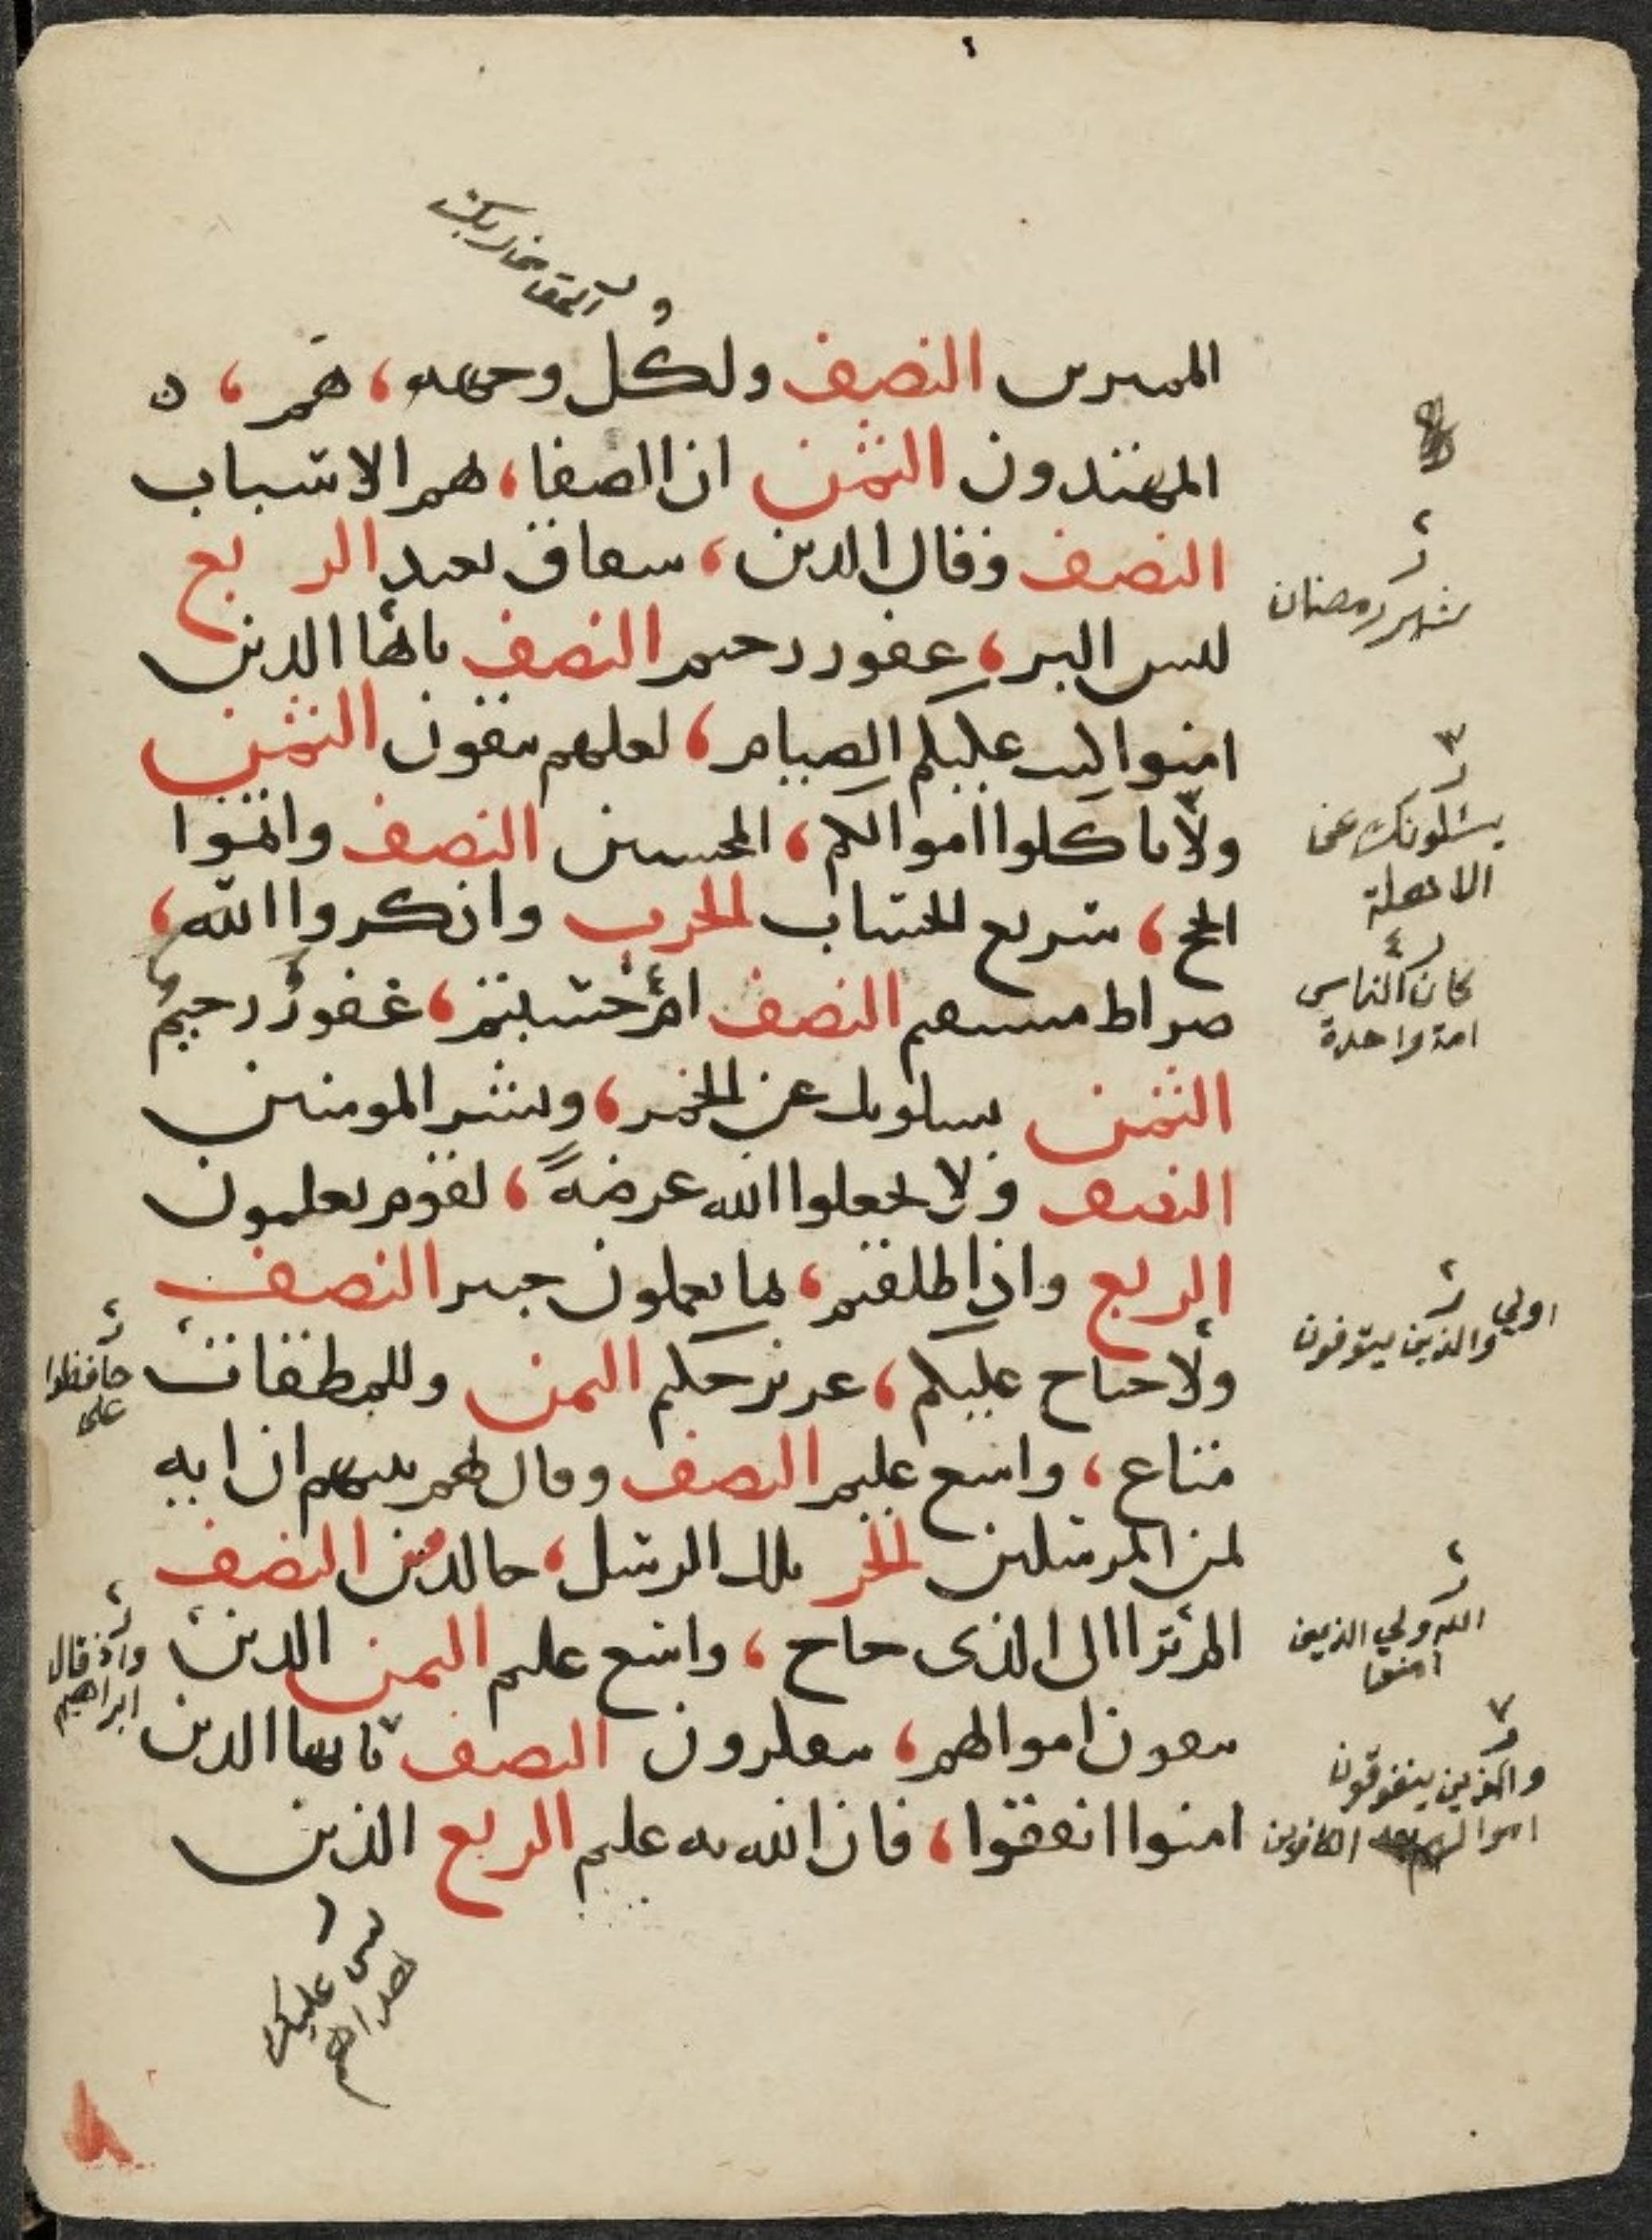 الحق من ربك
الممترين النصف ولكل وجهه، هم، ن
المهتدون الثمن ان الصفا، هم الاسباب
النصف وقال الدين، شقاق بعيد الربع
ليس البر، غفور رحيم النصف يايها الدين
امنوا كتب عليكم الصيام، لعلهم يتقون الثمن
ولا تاكلوا اموالكم، المحسنين النصف واتموا
الحج، سريع الحساب الحزب واذكروا الله،
صراط مستقيم النصف ام حسبتم، غفور رحيم
الثمن يسلونك عن الخمر، وبشر المومنين
النصف ولا تجعلوا الله عرضةً، لقوم يعلمون
الربع واذا طلقتم، بما تعملون خبير النصف
ولا جناح عليكم، عزيز حكيم الثمن وللمطلقات
متاع، واسع عليم النصف وقال لهم نبيهم ان ايه
لمن المرسلين الحز تلك الرسل، خالدين النصف
الم تر الى الذى حاج، واسع عليم الثمن الدين
ينفقون اموالهم، تفكرون النصف يايها الدين
امنوا انفقوا، فان الله به عليم الربع الذين
شهر رمضان
يسئلونك عن
الاهلة
كان الناس
امة واحدة
اولي والذين يتوفون
الله ولي الذين
امنوا
والذين ينفقون
اموالهم الكافرين
حافظوا
على
واذ قال
ابراهيم
ليس عليك
هداهم